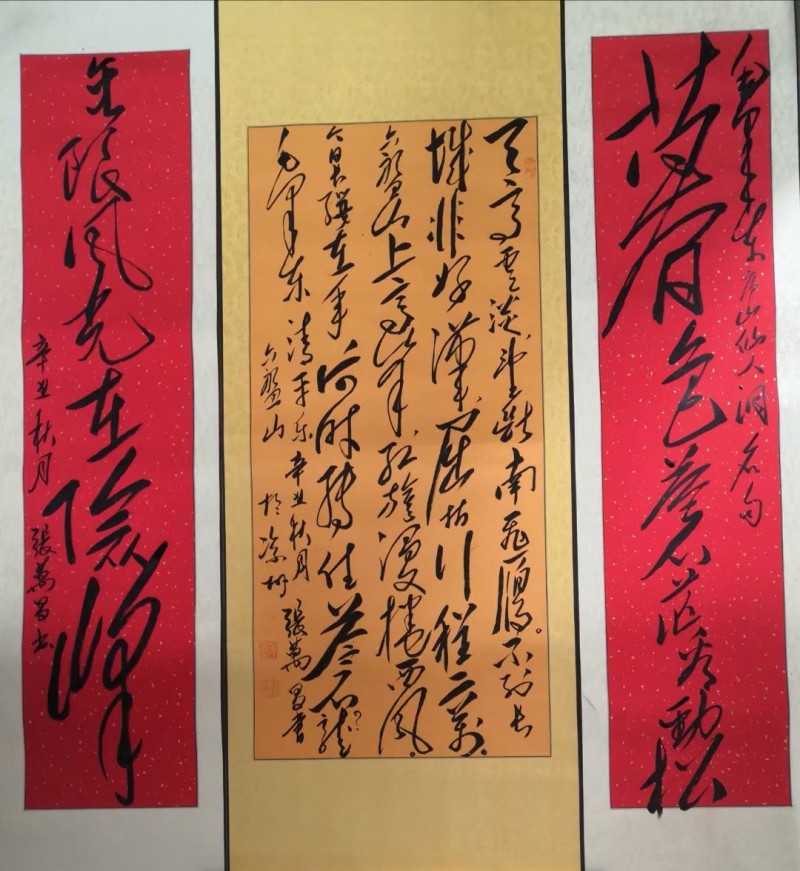 毛泽东庐山仙人洞名句
暮色蒼茫看勁松
天高雲淡望断南飛雁。不到长
城非好漢,屈指行程二萬。
六盤山上高峰,红旗漫捲西风。
今日长缨在手何时缚住苍龙?
毛泽东清平乐辛丑秋月張萬昌書
六盤山於凉州
无限风光在險峰
辛丑秋月張萬昌书